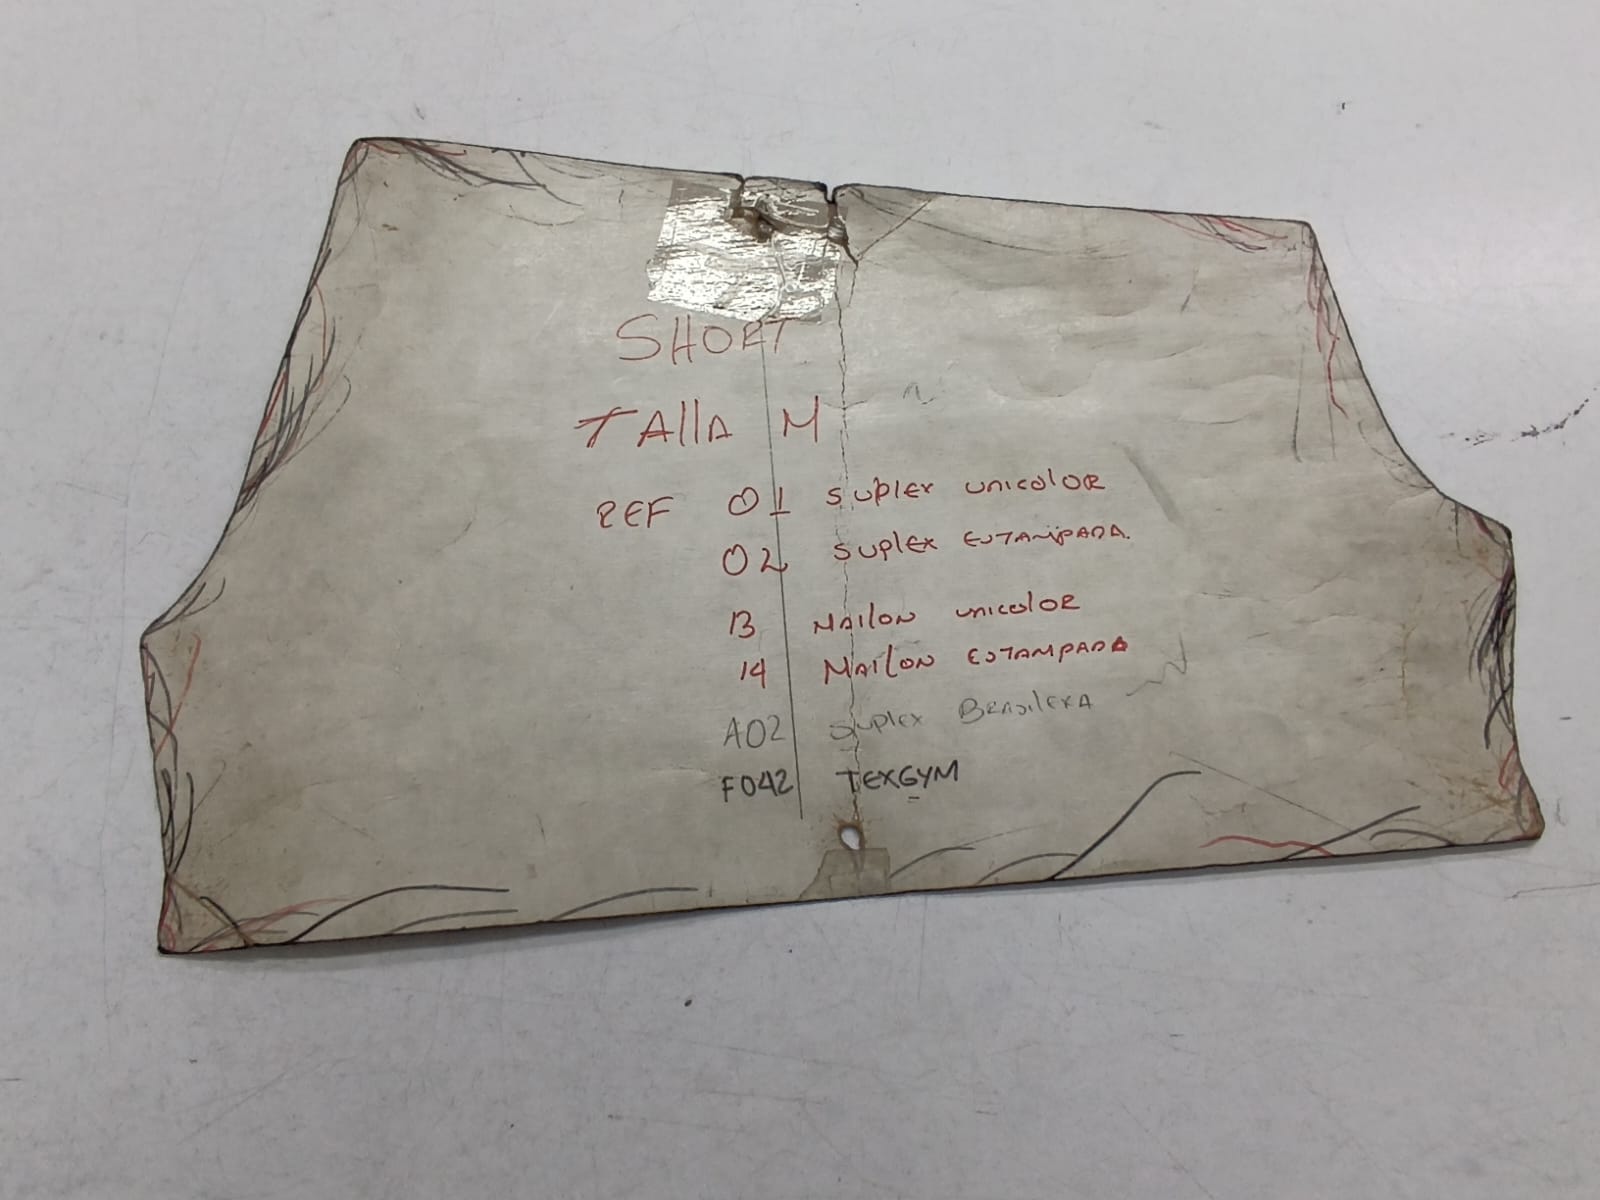 SHORT
TAllA M
REF 01 SUPlEX UNICOlOR
02 SUPlEX ESTAMPADA.
13 MAIlON UNICOlOR
14 MAIlON ESTAMPADA
A02 SUPlEX BRASILERA
F042 TEXGYM